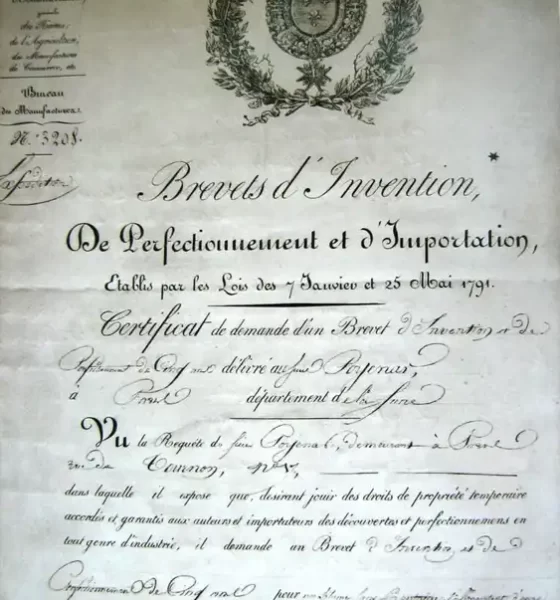 générale
des Haras,
de l'Agriculture,
des Manufactures
du Commerce, etc
Bureau
des Manufactures.
N.° 3208.
Brevets d'Invention,
De Perfectionnement et d'Importation,
Etablis par les Lois des 7 Janvier et 25 Mai 1791.
Certificat de demande d'un Brevet d'Invention et de
Perfectionnement de Cinq ans délivré au sieur
à Paris département de la Seine
Vu la Requête du sieur demeurant à Paris
rue de Tournon,
dans laquelle il expose que, désirant jouir des droits de propriété temporaire
accordés et garantis aux auteurs et importateurs des découvertes et perfectionnemens en
tout genre d'industrie, il demande un Brevet d'Invention et de
Perfectionnement de Cinq ans pour